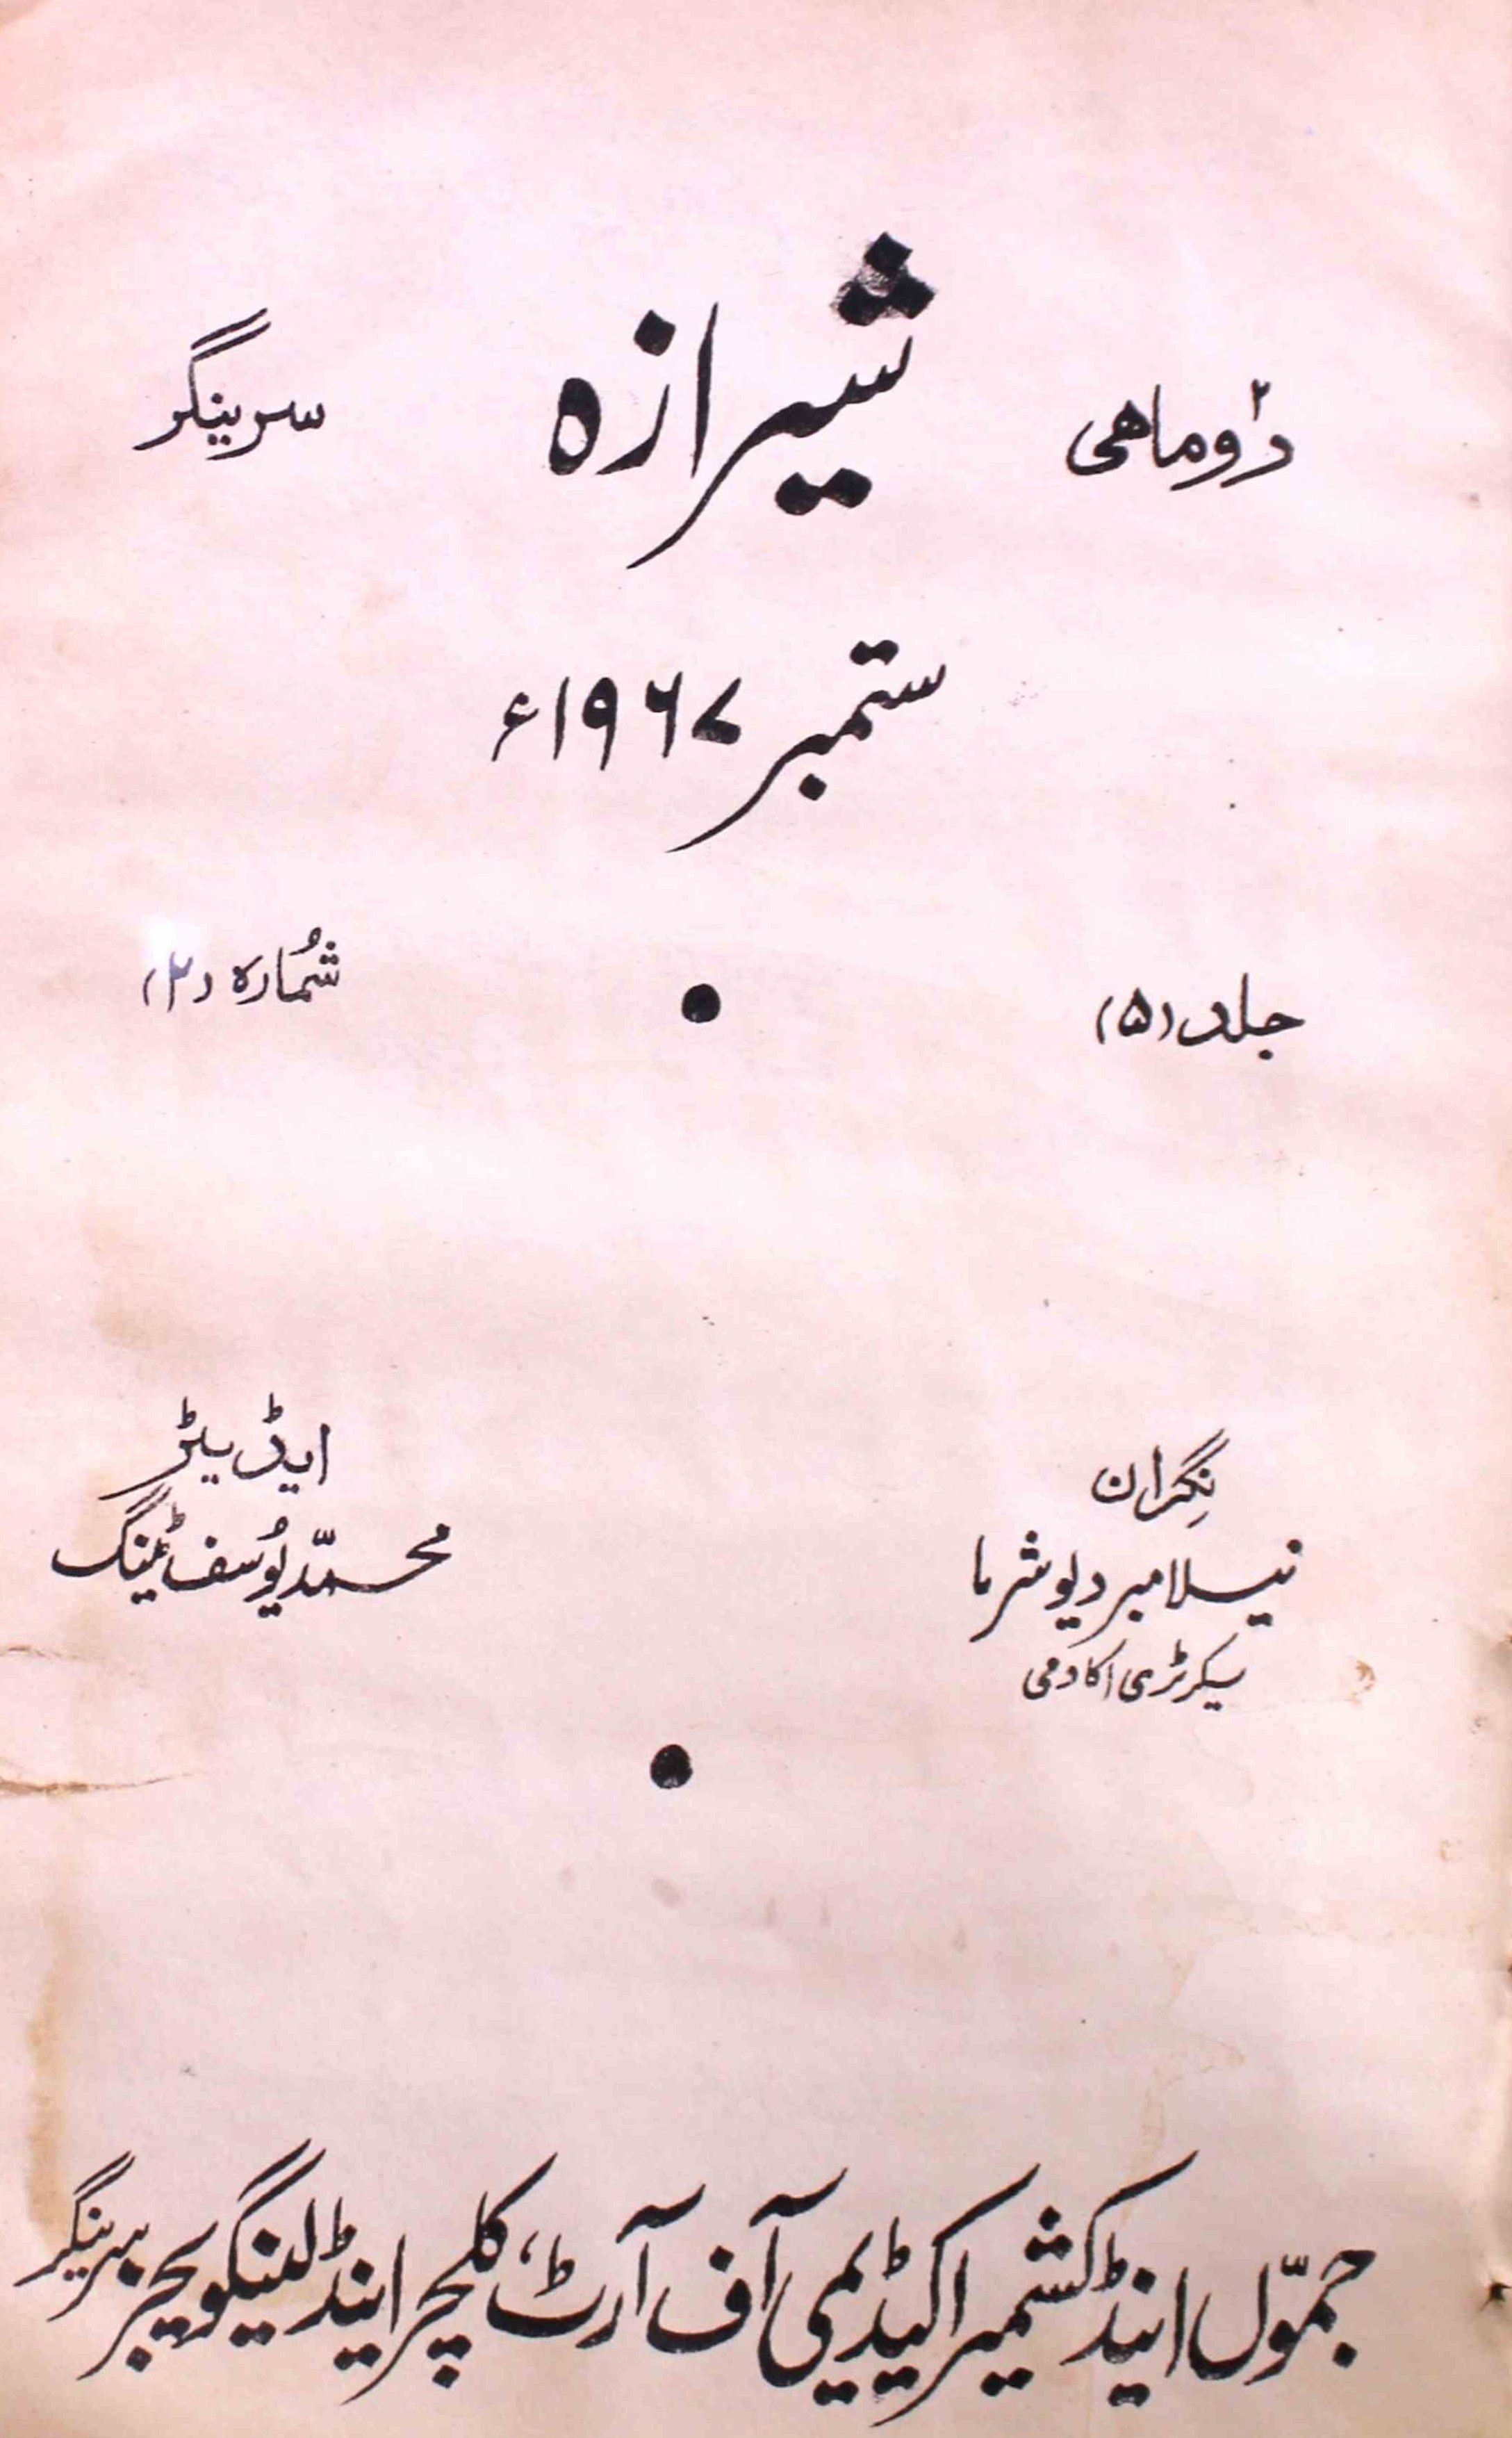 دوماهی شیرازه سرینگر
ستمبر ۱۹۶۷ء
جلد (۵) شُمارہ (۲)
نِگران
نیلامبر دیو شرما
سیکرٹری اکادمی
ایڈیٹر
محمّد یُوسف ٹینگ
جمّوں اینڈ کشمیر اکیڈیمی آف آرٹ، کلچر اینڈ لینگویجز سرینگر